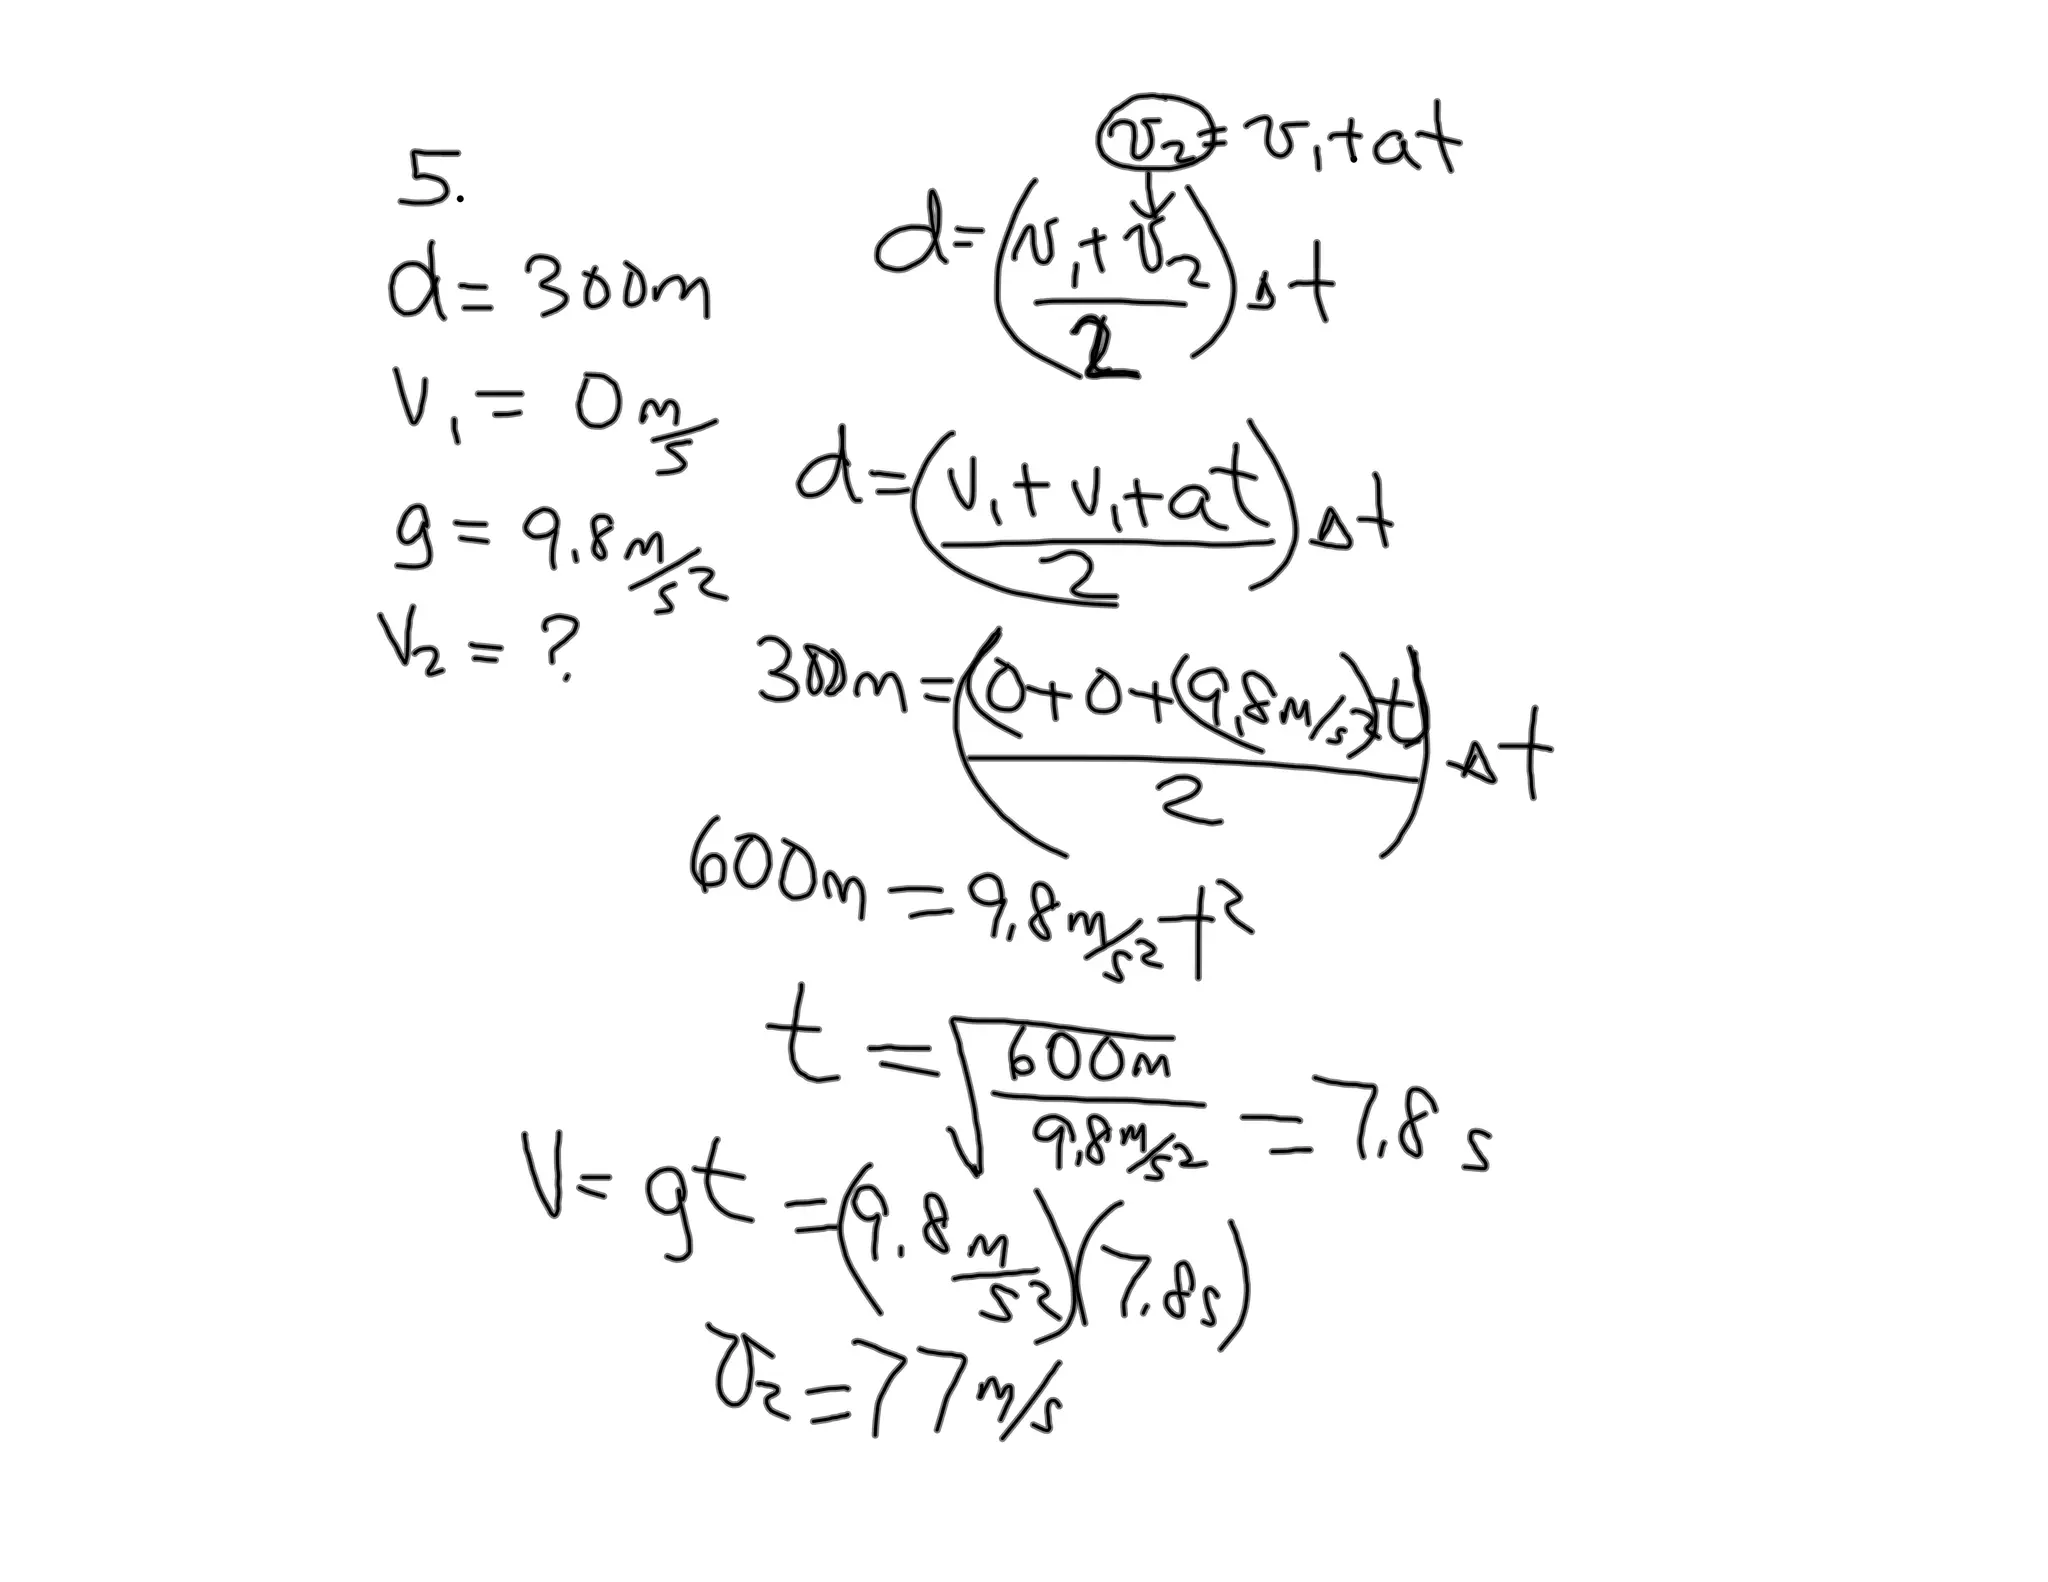 5.
d = 300m
v₁ = 0 m/s
g = 9.8 m/s²
v₂ = ?
v₂ = v₁ + at
d = ((v₁ + v₂)/2) Δt
d = ((v₁ + v₁ + at)/2) Δt
300m = ((0 + 0 + (9.8 m/s²)t)/2) Δt
600m = 9.8 m/s² t²
t = √(600m / 9.8 m/s²) = 7.8 s
V = gt = (9.8 m/s²)(7.8s)
v₂ = 77 m/s